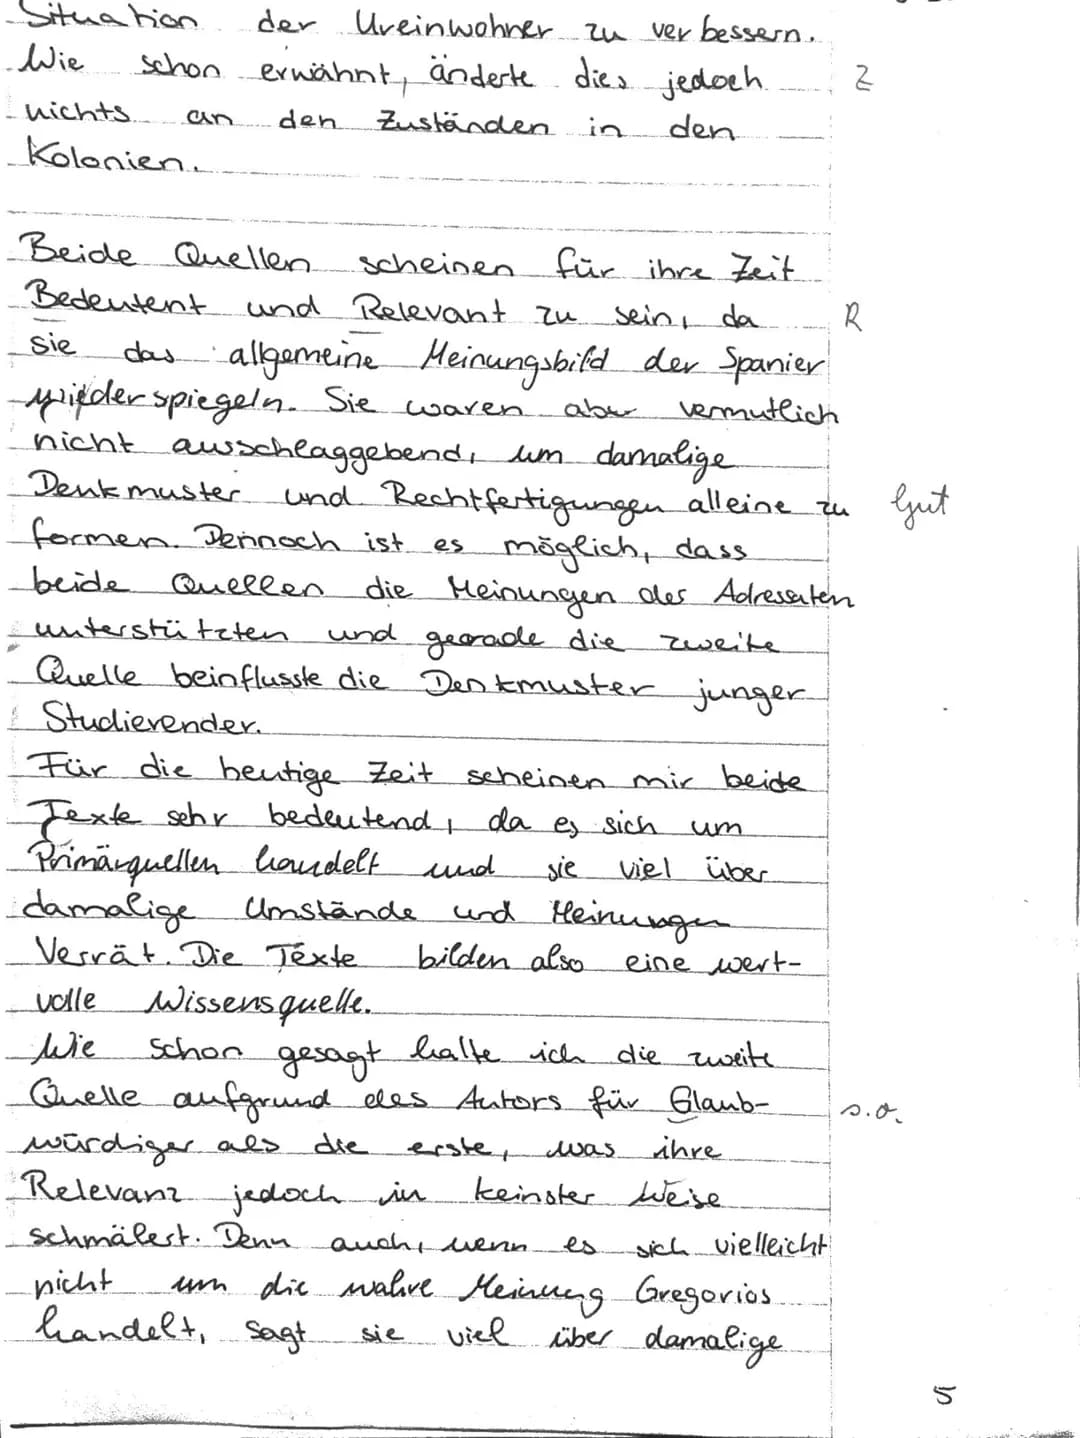 Situation der Ureinwohner zu verbessern.
Wie schon erwähnt, änderte dies jedoch Z
nichts an den Zuständen in den
Kolonien.
Beide Quellen scheinen für ihre Zeit
Bedeutent und Relevant zu sein, da R
sie das allgemeine Meinungsbild der Spanier
wiederspiegeln. Sie waren aber vermutlich
nicht ausschlaggebend, um damalige
Denkmuster und Rechtfertigungen alleine zu Gut
formen. Dennoch ist es möglich, dass
beide Quellen die Meinungen des Adressaten
unterstützten und gerade die zweite
Quelle beinflusste die Denkmuster junger
Studierender.
Für die heutige Zeit scheinen mir beide
Texte sehr bedeutend, da es sich um
Primärquellen handelt und sie viel über
damalige Umstände und Meinungen
Verrät. Die Texte bilden also eine wert-
volle Wissensquelle.
Wie schon gesagt halte ich die zweite
Quelle aufgrund des Autors für Glaub- s.o.
würdiger als die erste, was ihre
Relevanz jedoch in keinster Weise
schmälert. Denn auch, wenn es sich vielleicht
nicht um die wahre Meinung Gregorios
handelt, sagt sie viel über damalige
5